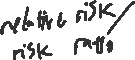 relative risk/
risk ratio